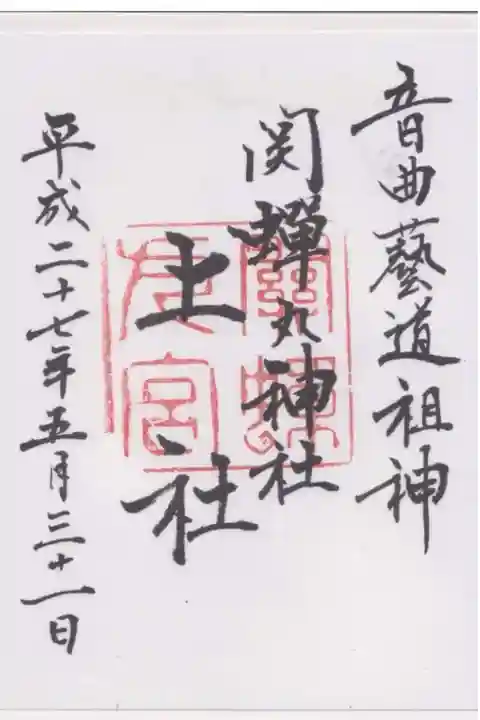 音曲藝道祖神
関蟬丸神社
上社
平成二十七年五月三十一日
關蟬丸宮